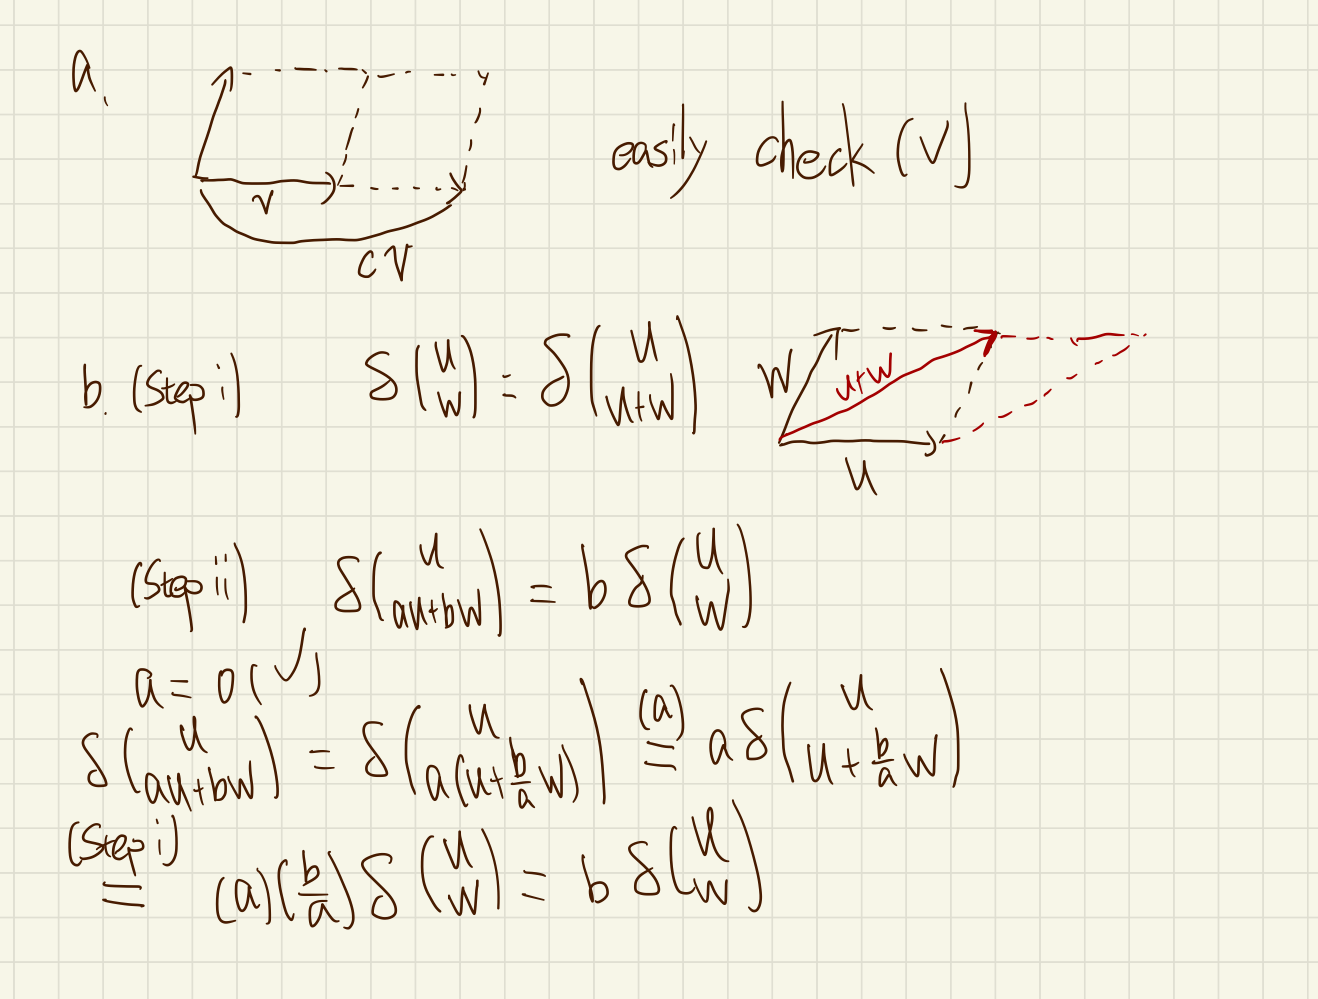 a.
easily check (V)
v
cv
b. (Step i) δ(u w) = δ(u u+w)
w u+w
u
(Step ii) δ(u au+bw) = b δ(u w)
a = 0 (✓)
δ(u au+bw) = δ(u a(u+b/a w)) (a)= a δ(u u+b/a w)
(Step i)= (a)(b/a) δ(u w) = b δ(u w)